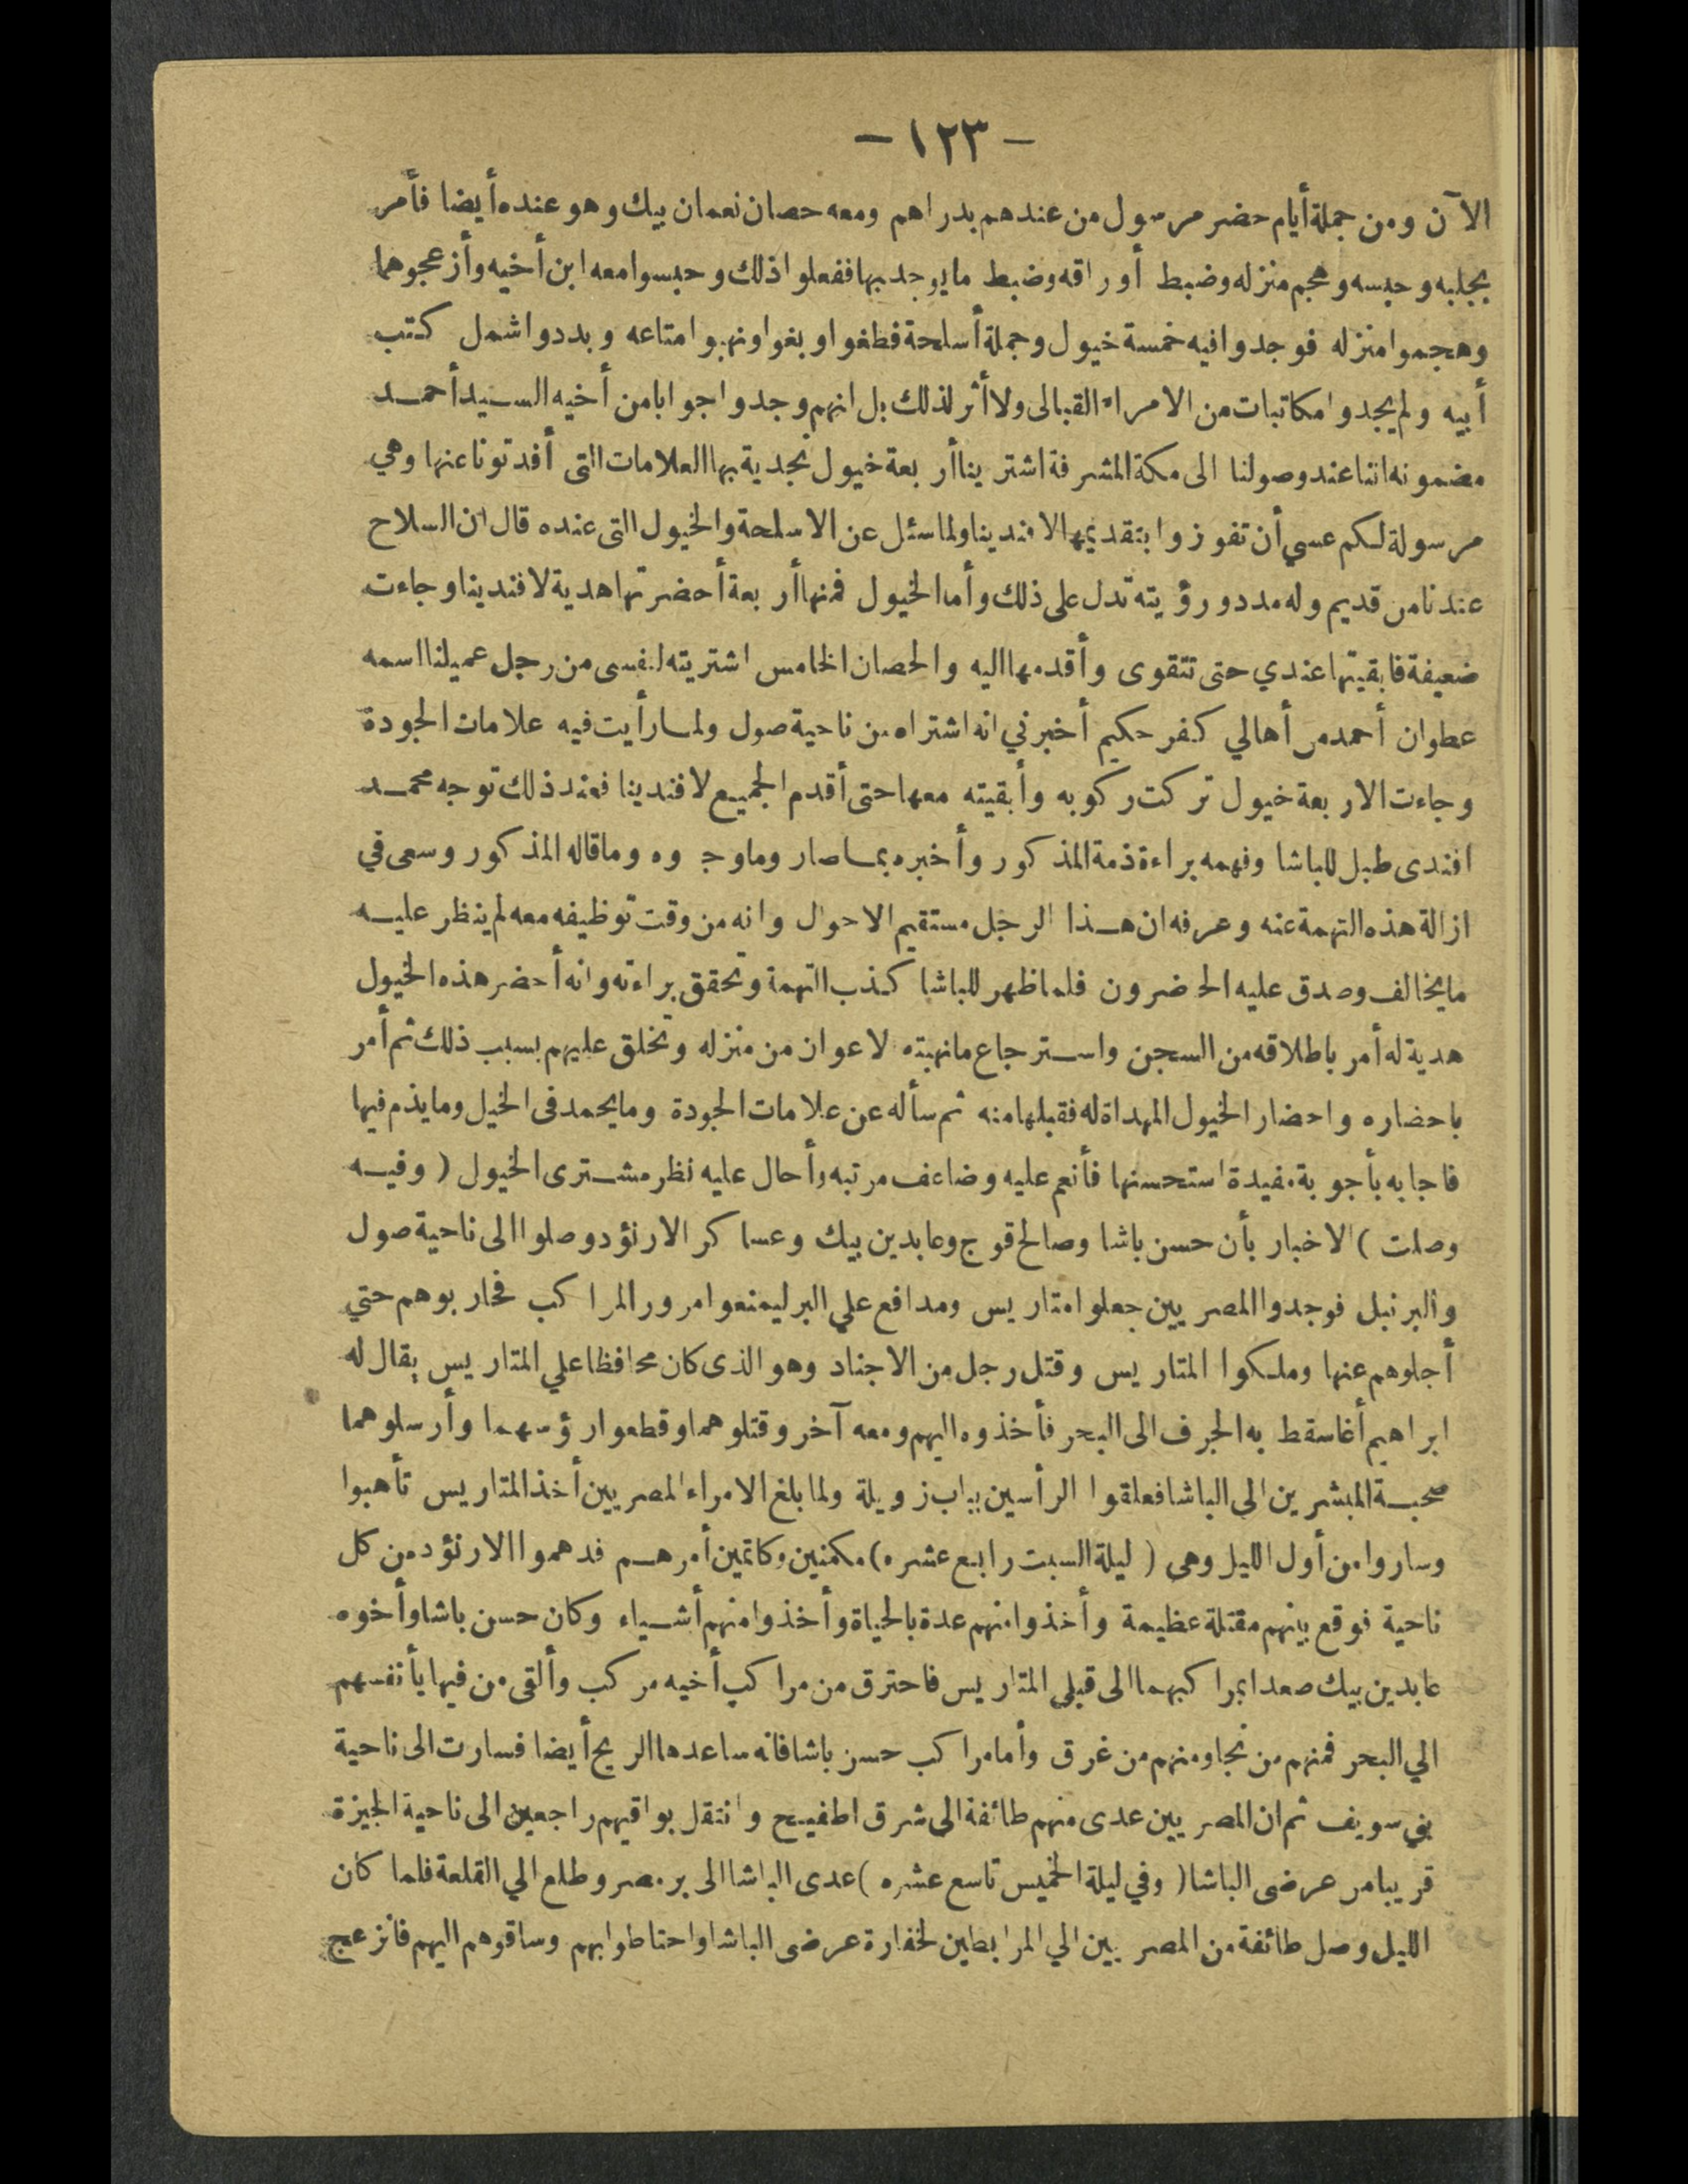 - ١٢٣ -
الآن ومن جملة أيام حضر مرسول من عندهم بدراهم ومعه حصان نعمان بيك وهو عنده أيضا فأمر
بجلبه وحبسه وهجم منزله وضبط أوراقه وضبط ما يوجد بها ففعلوا ذلك وحبسوا معه ابن أخيه وأزعجوهما
وهجموا منزله فوجدوا فيه خمسة خيول وجملة أسلحة فطغوا وبغوا ونهبوا متاعه وبددوا شمل كتب
أبيه ولم يجدوا مكاتبات من الامراء القبالى ولا أثر لذلك بل انهم وجدوا جوابا من أخيه السيد أحمد
مضمونه اننا عند وصولنا الى مكة المشرفة اشترينا أربعة خيول نجدية بها العلامات التى أفدتونا عنها وهي
مرسولة لكم عسي أن تفوزوا بتقديمها لافندينا ولما سئل عن الاسلحة والخيول التى عنده قال ان السلاح
عندنا من قديم وله مدد ورؤيته تدل على ذلك وأما الخيول فمنها أربعة أحضرتها هدية لافندينا وجاءت
ضعيفة فابقيتها عندي حتى تتقوى وأقدمها اليه والحصان الخامس اشتريته لنفسى من رجل عميلنا اسمه
عطوان أحمد من أهالي كفر حكيم أخبرني انه اشتراه من ناحية صول ولما رأيت فيه علامات الجودة
وجاءت الاربعة خيول تركت ركوبه وأبقيته معها حتى أقدم الجميع لافندينا فعند ذلك توجه محمد
افندى طبل للباشا وفهمه براءة ذمة المذكور وأخبره بما صار وما وجدوه وما قاله المذكور وسعى في
ازالة هذه التهمة عنه وعرفه ان هذا الرجل مستقيم الاحوال وانه من وقت توظيفه معه لم ينظر عليه
ما يخالف وصدق عليه الحضرون فلما ظهر للباشا كذب التهمة وتحقق براءته وانه أحضر هذه الخيول
هدية له أمر باطلاقه من السجن واسترجاع ما نهبته لاعوان من منزله وتخلق عليهم بسبب ذلك ثم أمر
باحضاره واحضار الخيول المهداة له فقبلها منه ثم سأله عن علامات الجودة وما يحمد فى الخيل وما يذم فيها
فاجابه بأجوبة مفيدة استحسنها فأنعم عليه وضاعف مرتبه وأحال عليه نظر مشترى الخيول ( وفيه
وصلت ) الاخبار بأن حسن باشا وصالح قوج وعابدين بيك وعساكر الارنؤد وصلوا الى ناحية صول
والبرنبل فوجدوا المصريين جعلوا متاريس ومدافع علي البر ليمنعوا مرور المراكب فحاربوهم حتي
أجلوهم عنها وملكوا المتاريس وقتل رجل من الاجناد وهو الذى كان محافظا علي المتاريس يقال له
ابراهيم أغا سقط به الجرف الى البحر فأخذوه اليهم ومعه آخر وقتلوهما وقطعوا رؤسهما وأرسلوهما
صحبة المبشرين الى الباشا فعلقوا الرأسين بباب زويلة ولما بلغ الامراء المصريين أخذ المتاريس تأهبوا
وساروا من أول الليل وهى ( ليلة السبت رابع عشره ) مكمنين وكاتمين أمرهم فدهموا الارنؤد من كل
ناحية فوقع بينهم مقتلة عظيمة وأخذوا منهم عدة بالحياة وأخذوا منهم أشياء وكان حسن باشا وأخوه
عابدين بيك صعدا بمراكبهما الى قبلي المتاريس فاحترق من مراكب أخيه مركب وألقى من فيها بأنفسهم
الي البحر فمنهم من نجا ومنهم من غرق وأما مراكب حسن باشا فانه ساعدها الريح أيضا فسارت الى ناحية
بني سويف ثم ان المصريين عدى منهم طائفة الى شرق اطفيح وانتقل بواقيهم راجعين الى ناحية الجيزة
قريبا من عرضى الباشا ( وفي ليلة الخميس تاسع عشره ) عدى الباشا الى بر مصر وطلع الي القلعة فلما كان
الليل وصل طائفة من المصريين الي المرابطين لخفارة عرضى الباشا واحتاطوا بهم وساقوهم اليهم فانزعج